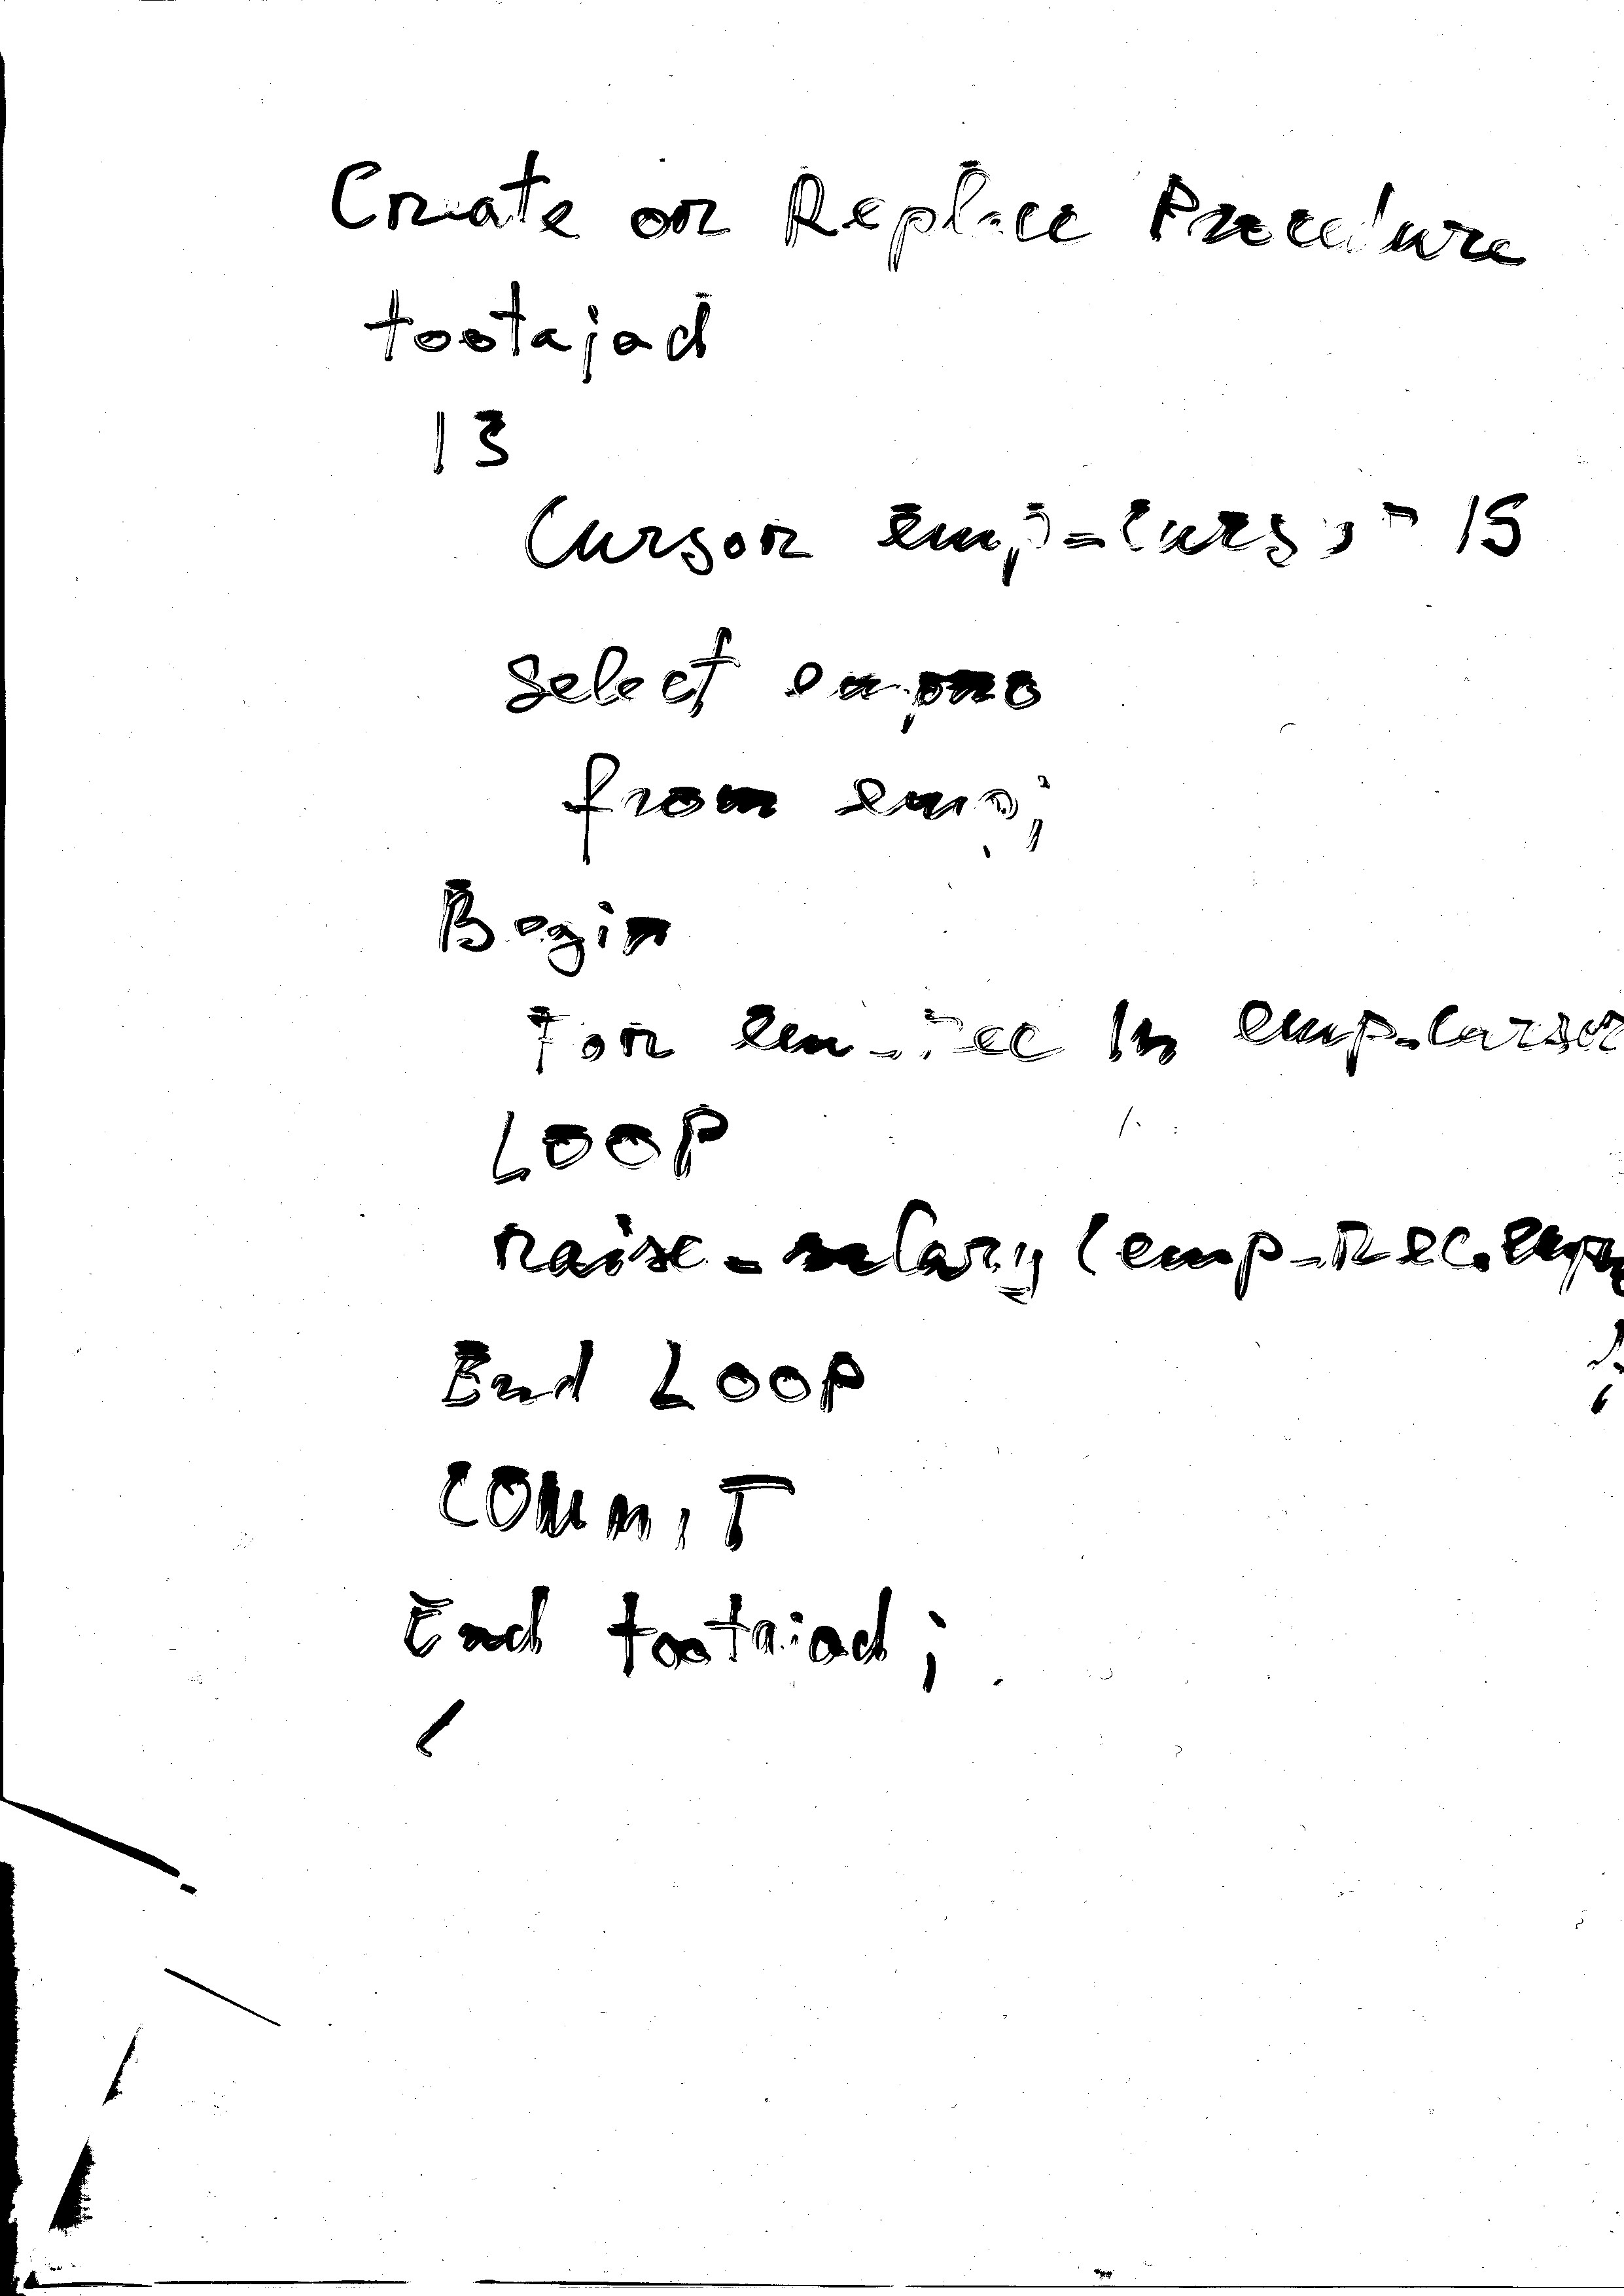 Create or Replace Procedure
tootajad
IS
Cursor emp_cursor IS
select empno
from emp;
Begin
For emp_rec In emp_cursor
LOOP
raise_salary (emp_rec.empn
);
End LOOP
COMMIT
End tootajad;
/